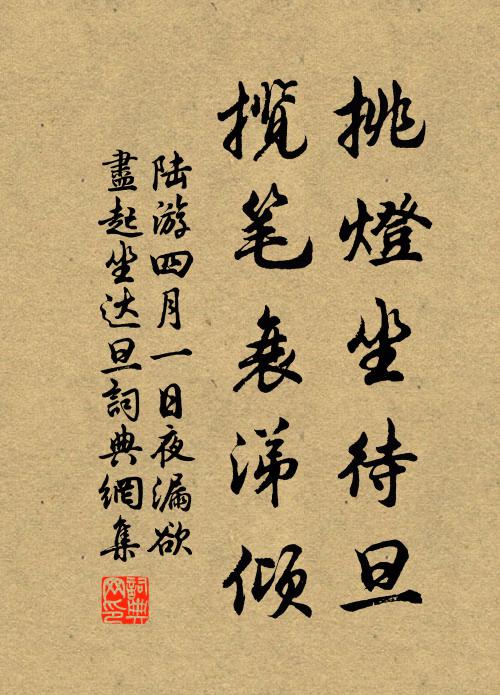 挑燈坐待旦
揽笔衰涕倾
陆游四月一日夜漏欲
盡起坐达旦詞典網集
詞典网印